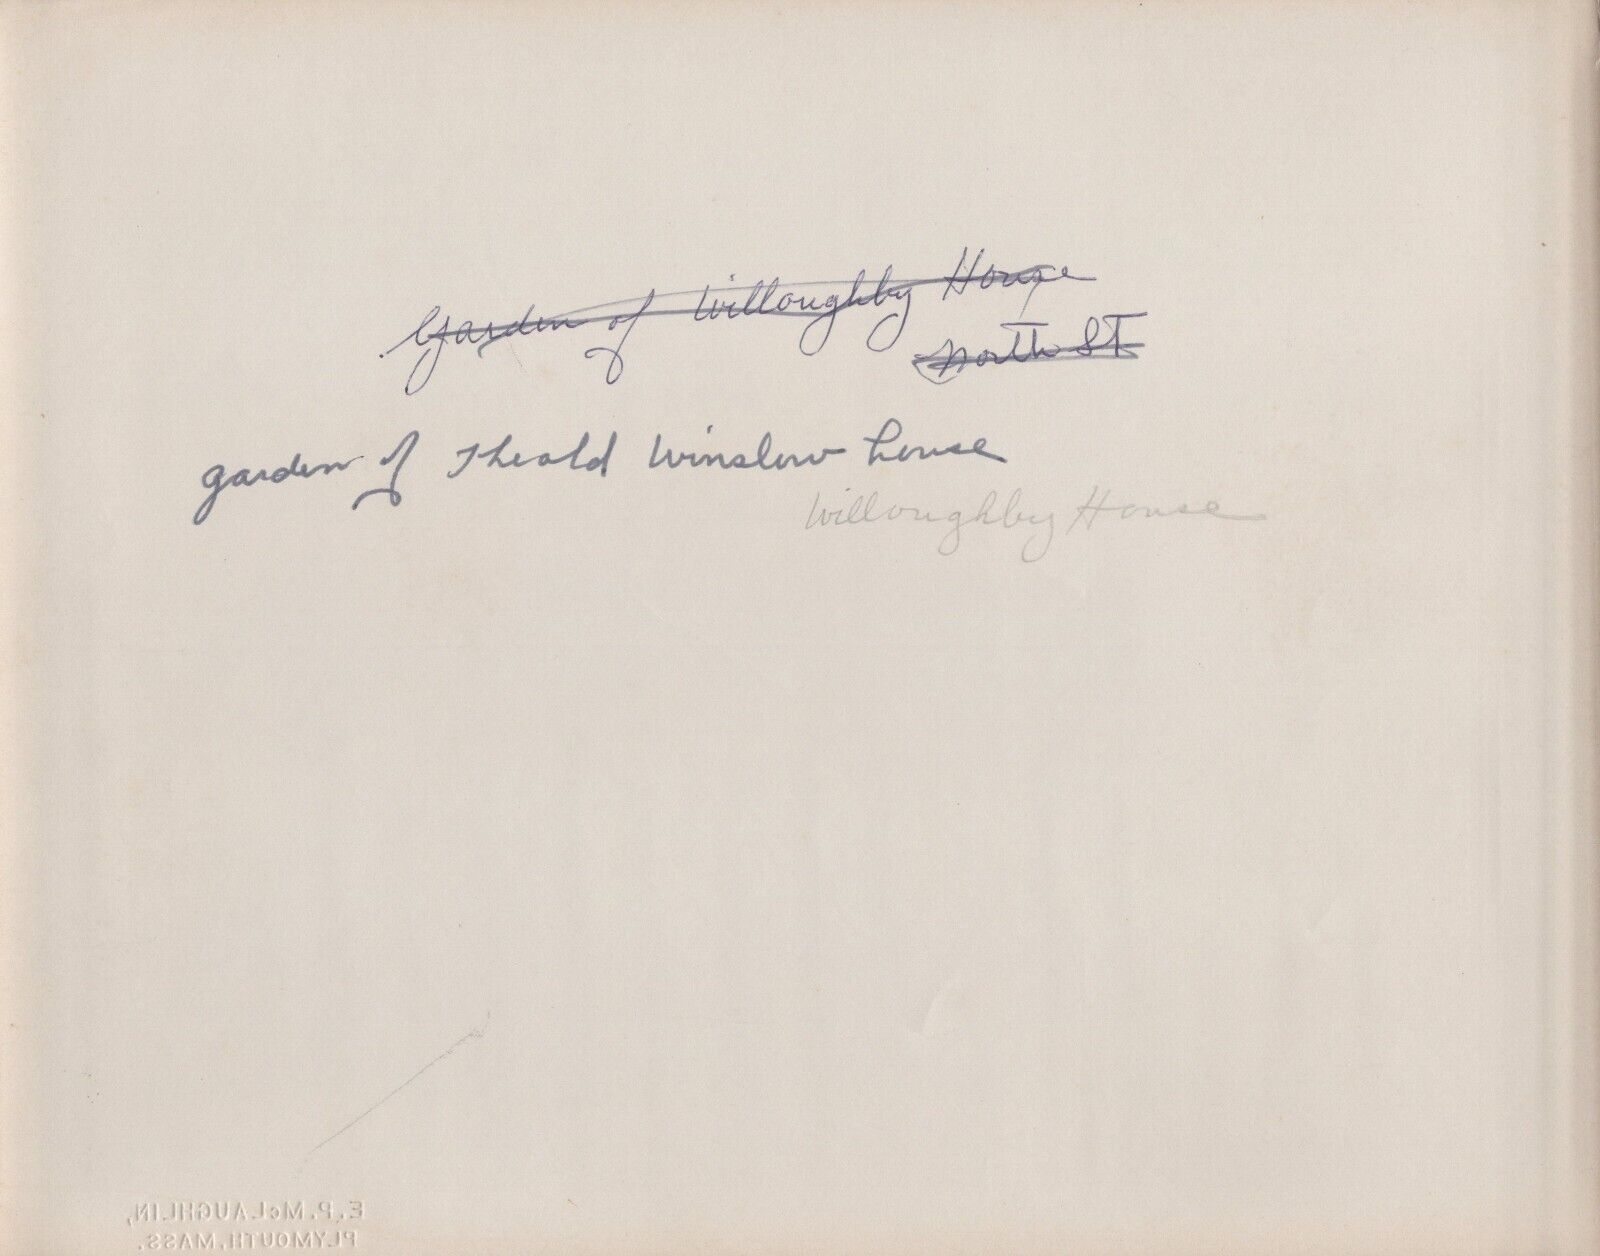 Garden of Willoughby House
North St
garden of The old Winslow house
Willoughby House
E. P. McLAUGHLIN,
PLYMOUTH, MASS.